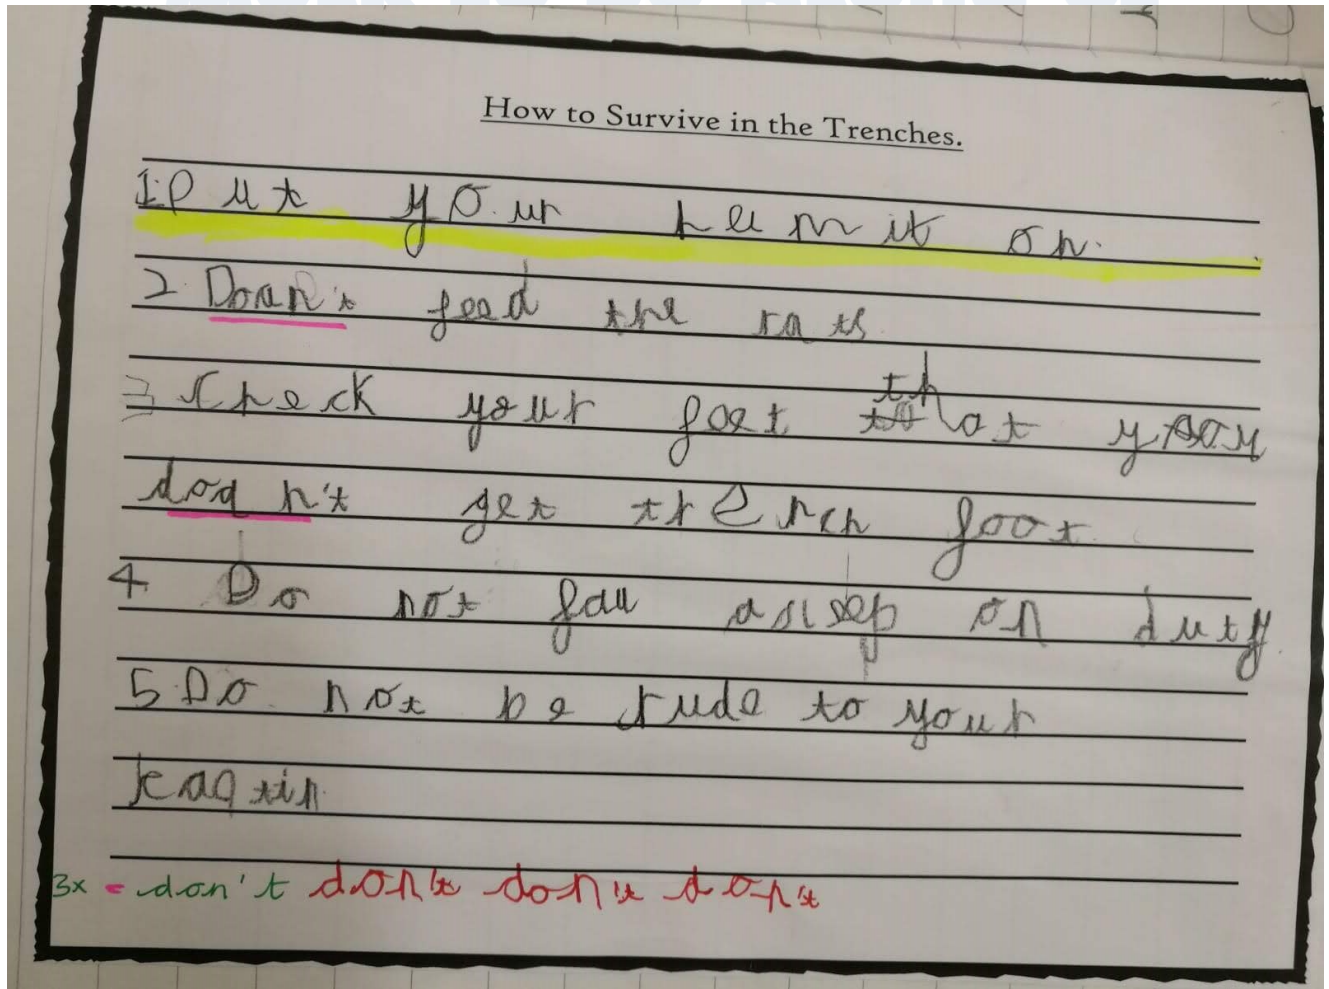 How to Survive in the Trenches.
1. Put your hemit on.
2. Doan't feed the rats
3 Check your feet that you
doan't get trench foot.
4 Do not fall asleep on duty.
5. Do not be rude to your
3x = don't don't don't don't